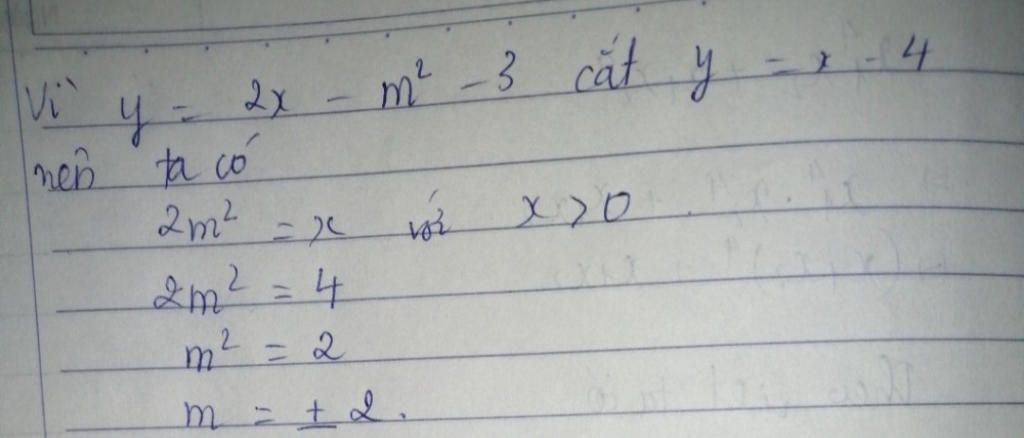 Vì y = 2x - m² - 3 cắt y = x - 4
nên ta có
2m² = x với x > 0.
2m² = 4
m² = 2
m = ± 2.